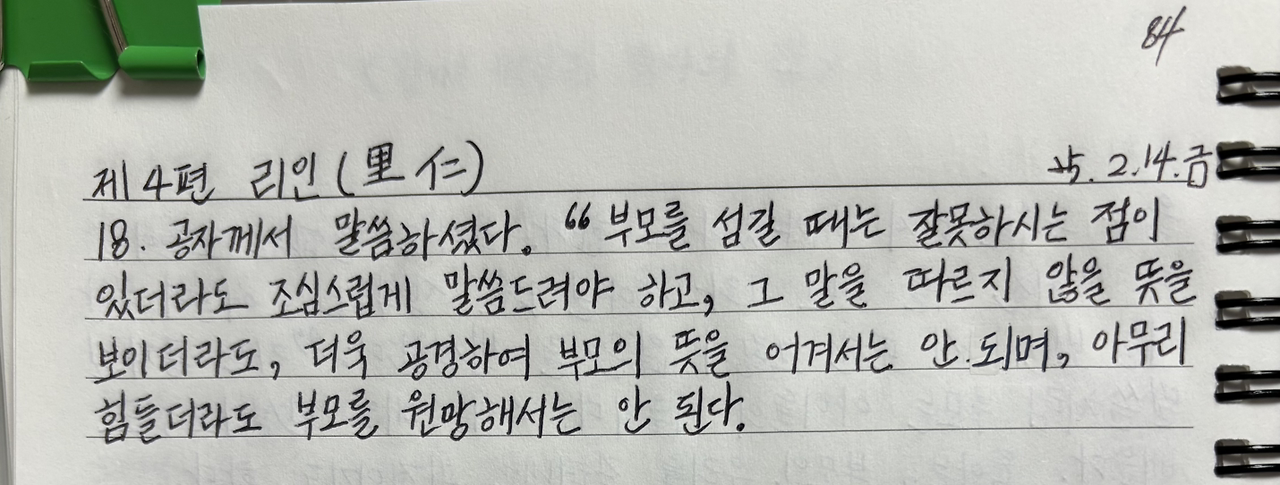 84
제4편 리인(里仁) 25.2.14.금
18. 공자께서 말씀하셨다. “부모를 섬길 때는 잘못하시는 점이
있더라도 조심스럽게 말씀드려야 하고, 그 말을 따르지 않을 뜻을
보이더라도, 더욱 공경하여 부모의 뜻을 어겨서는 안 되며, 아무리
힘들더라도 부모를 원망해서는 안 된다.